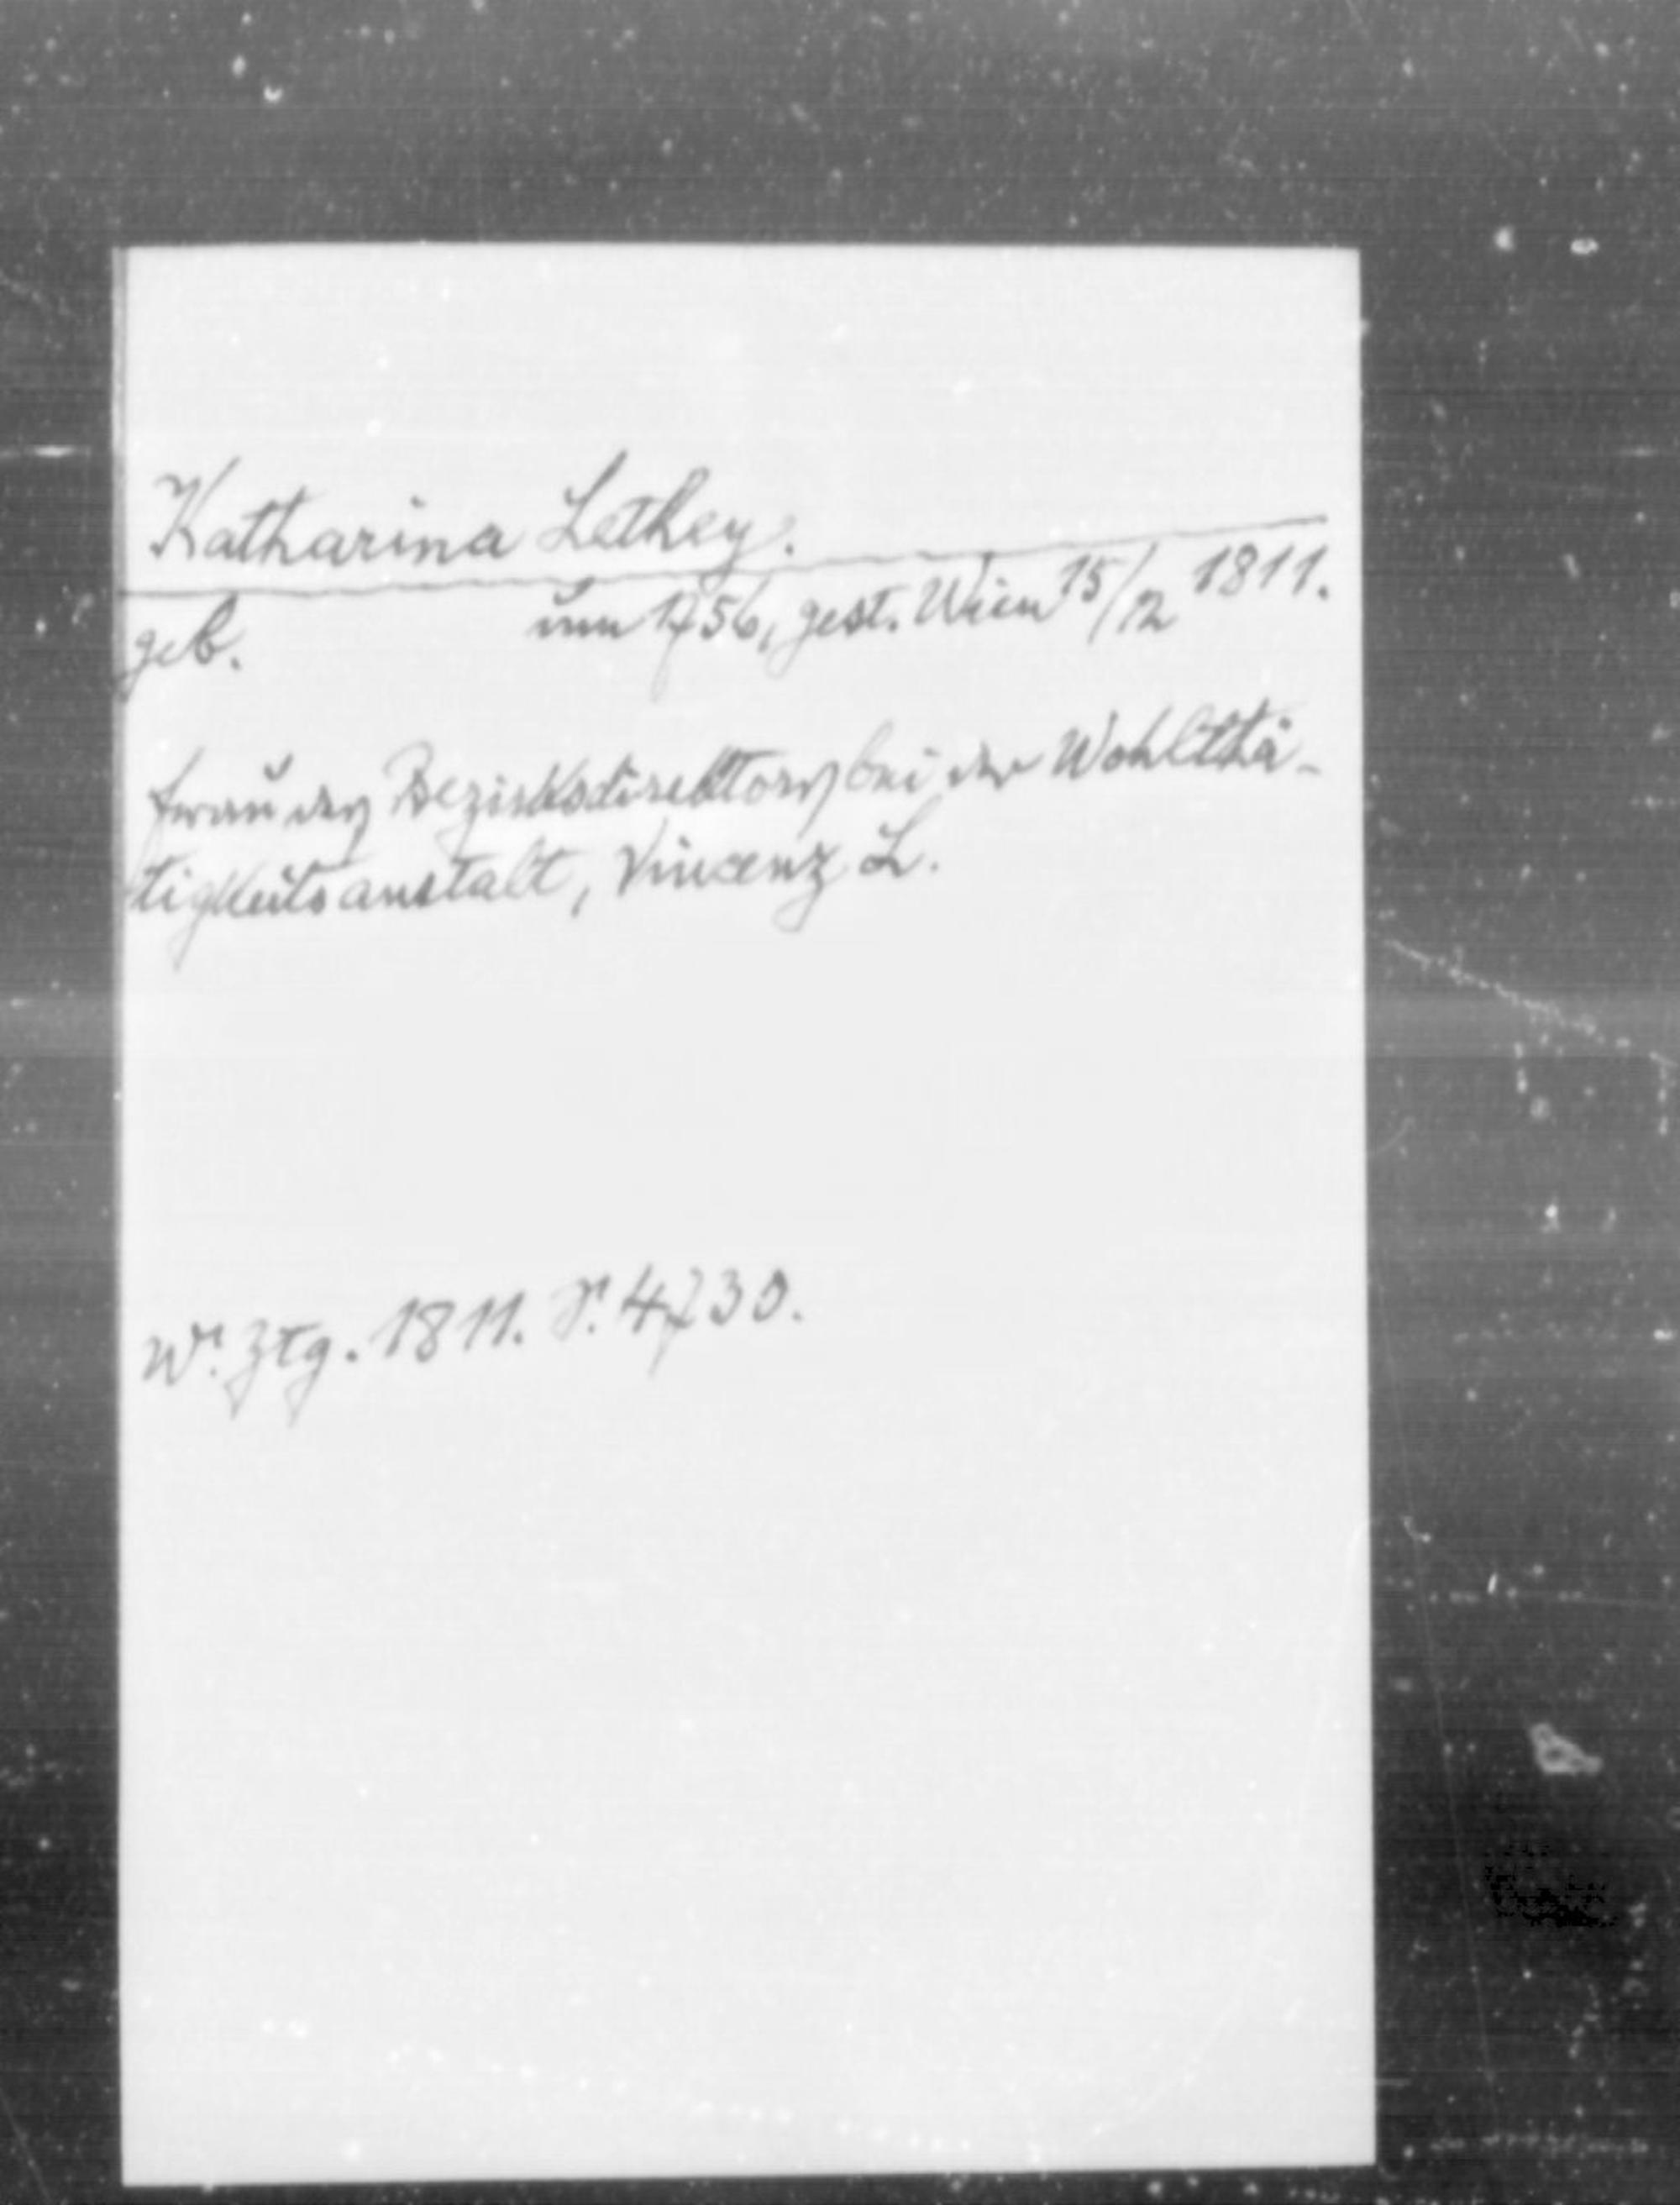 Katharina Lethey.
geb. um 1756, gest. Wien 15/12 1811.
Frau des Bezirksdirektors bei der Wohlthä-
tigkeitsanstalt, Vincenz L.
Wr. Ztg. 1811. S. 4730.